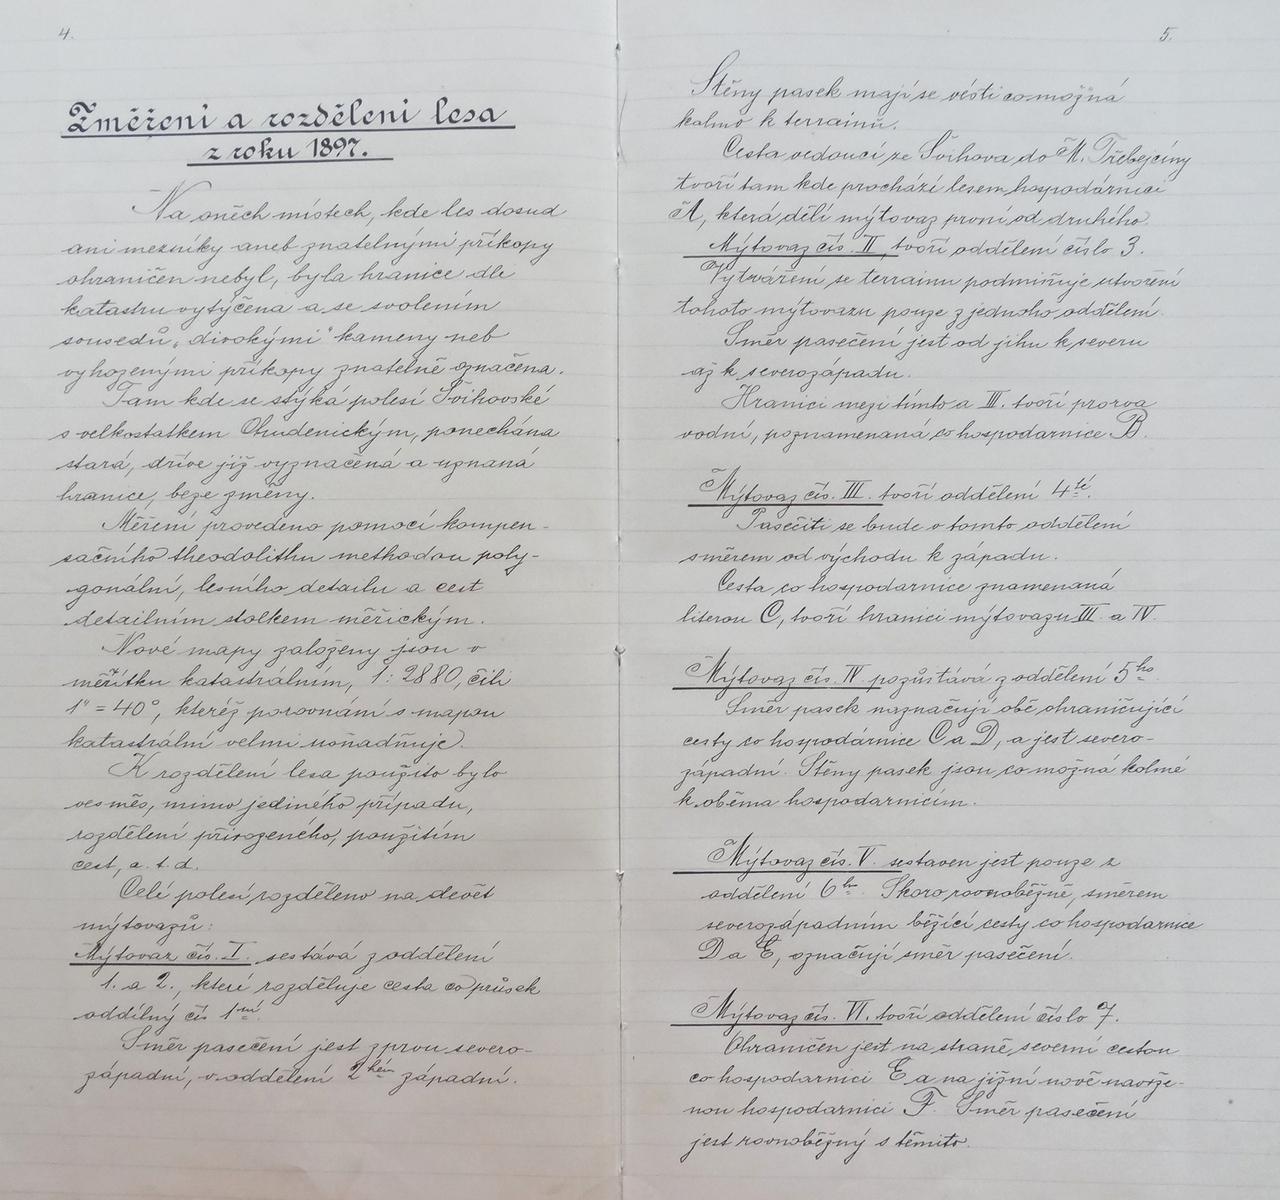 4.
Změření a rozdělení lesa
z roku 1897.
Na oněch místech, kde les dosud
ani mezníky aneb znatelnými příkopy
ohraničen nebyl, byla hranice dle
katastru vytýčena a se svolením
sousedů „divokými“ kameny neb
vyhozenými příkopy znatelně označena.
Tam kde se stýká polesí Švihovské
s velkostatkem Chudenickým, ponechána
stará, dříve již vyznačená a uznaná
hranice, beze změny.
Měření provedeno pomocí kompen-
sačního theodolithu methodou poly-
gonální, lesního detailu a cest
detailním stolkem měřickým.
Nové mapy založeny jsou v
měřítku katastrálním, 1:2880, čili
1" = 40°, kteréž porovnání s mapou
katastrální velmi usnadňuje.
K rozdělení lesa použito bylo
vesměs, mimo jediného případu,
rozdělení přirozeného, použitím
cest, a. t. d.
Celé polesí rozděleno na devět
mýtovazů:
Mýtovaz čís. I. sestává z oddělení
1. a 2., které rozděluje cesta co průsek
oddílný čís 1ní.
Směr pasečení jest zprvu severo-
západní, v oddělení 2hém západní.
5.
Stěny pasek mají se vésti co možná
kolmo k terrainu.
Cesta vedoucí ze Švihova do M. Třebejčiny
tvoří tam kde prochází lesem hospodárnici
A, která dělí mýtovaz první od druhého.
Mýtovaz čís. II, tvoří oddělení číslo 3.
Vytváření se terrainu podmiňuje utvoření
tohoto mýtovazu pouze z jednoho oddělení.
Směr pasečení jest od jihu k severu
až k severozápadu.
Hranici mezi tímto a III. tvoří prorva
vodní, poznamenaná co hospodarnice B.
Mýtovaz čís. III. tvoří oddělení 4té.
Pasečiti se bude v tomto oddělení
směrem od východu k západu.
Cesta co hospodarnice znamenaná
literou C, tvoří hranici mýtovazu III. a IV.
Mýtovaz čís. IV. pozůstává z oddělení 5ho.
Směr pasek naznačují obě ohraničující
cesty co hospodárnice C a D, a jest severo-
západní. Stěny pasek jsou co možná kolmé
k oběma hospodarnicím.
Mýtovaz čís. V. sestaven jest pouze z
oddělení 6ho. Skoro rovnoběžně, směrem
severozápadním běžící cesty co hospodarnice
D a E, označují směr pasečení.
Mýtovaz čís. VI. tvoří oddělení číslo 7.
Ohraničen jest na straně severní cestou
co hospodarnicí E a na jižní nově navrže-
nou hospodarnicí F. Směr pasečení
jest rovnoběžný s těmito.